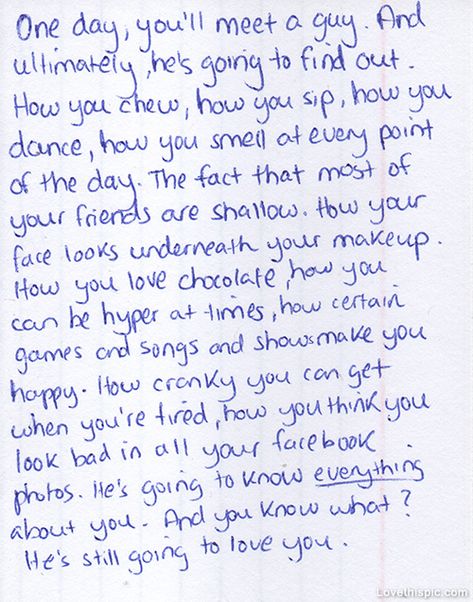 One day, you'll meet a guy. And
ultimately, he's going to find out.
How you chew, how you sip, how you
dance, how you smell at every point
of the day. The fact that most of
your friends are shallow. How your
face looks underneath your makeup.
How you love chocolate, how you
can be hyper at times, how certain
games and songs and shows make you
happy. How cranky you can get
when you're tired, how you think you
look bad in all your facebook
photos. He's going to know everything
about you. And you know what?
He's still going to love you.
Lovethispic.com